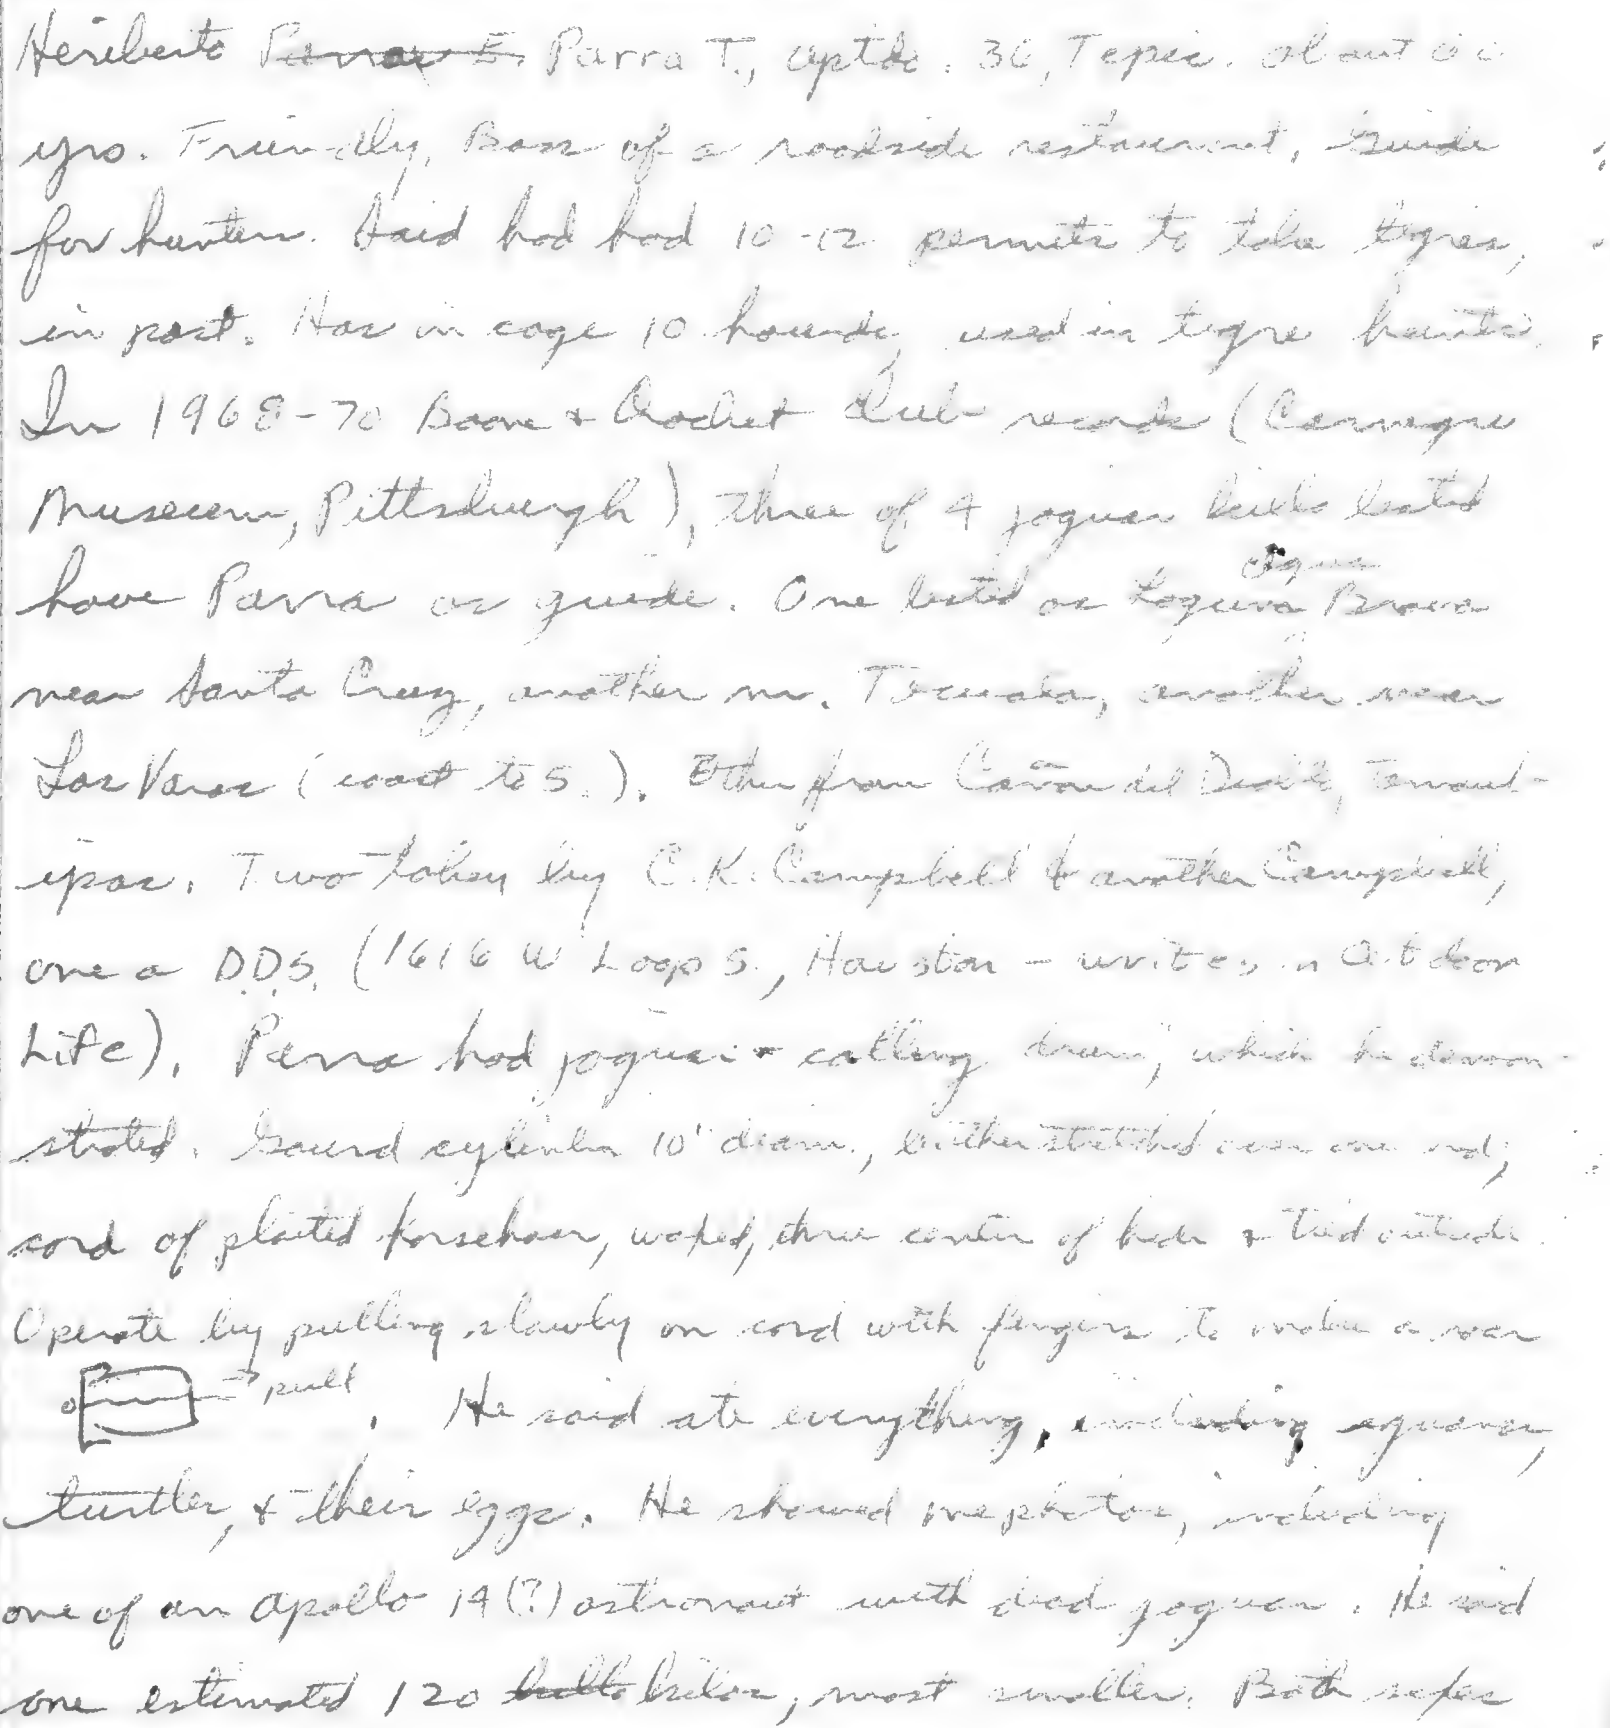 Heriberto Parra T., aptdo. 36, Tepic. About 60
yrs. Friendly, Boss of a roadside restaurant, Guide
for hunters. Said had had 10-12 permits to take tigres,
in past. Has in cage 10 hounds, used in tigre hunts.
In 1968-70 Boone & Crocket Club records (Carnegie
Museum, Pittsburgh), three of 4 jaguar kills listed
have Parra as guide. One listed as Laguna Agua Brava
near Santa Cruz, another nr. Tecuala, another near
Las Varas (coast to S.). Other from Cañon del Diablo, Tamaul-
ipas. Two taken by C.K. Campbell & another Campbell,
one a D.D.S. (1616 W Loop S., Houston - writes in Outdoor
Life). Parra had jaguar calling drum, which he demon-
strated. Gourd cylinder 10" diam., leather stretched over one end;
cord of plaited horsehair, waxed, thru center of hide & tied outside.
Operate by pulling slowly on cord with fingers to make a roar
pull. He said ate everything, including iguanas,
turtles, & their eggs. He showed me photos, including
one of an Apollo 14(?) astronaut with dead jaguar. He said
one estimated 120 kilos, most smaller. Both sexes